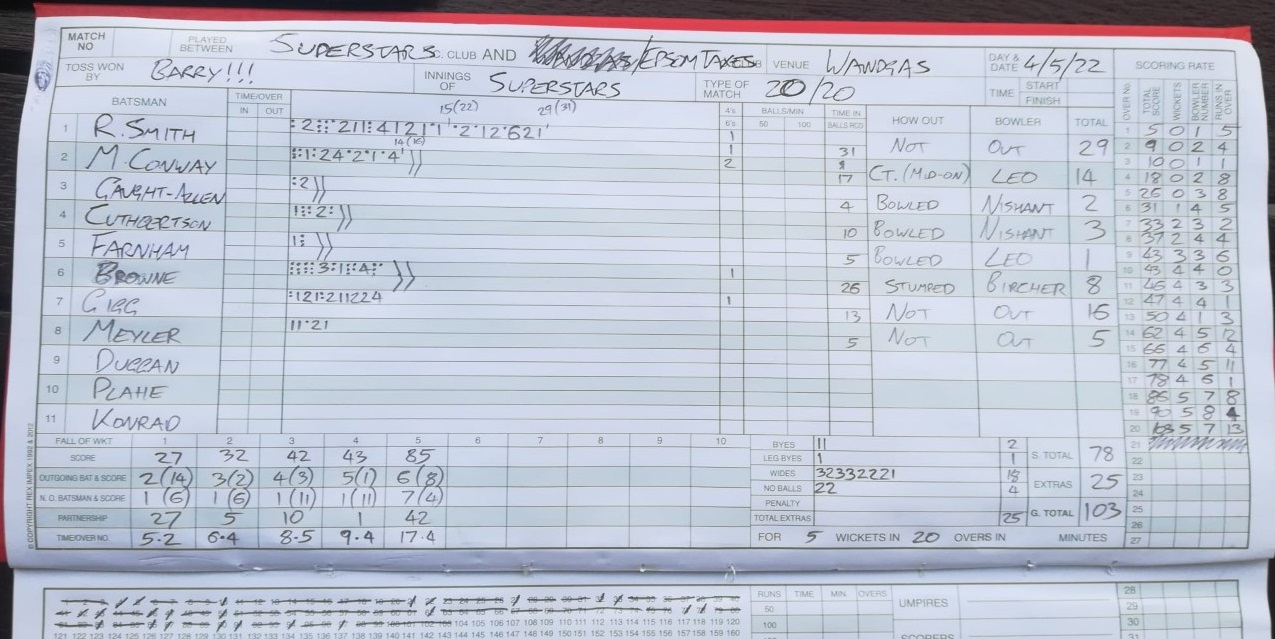 MATCH NO PLAYED BETWEEN SUPERSTARS C. CLUB AND /EPSOM TAXES VENUE WANDGAS DAY & DATE 4/5/22 SCORING RATE
TOSS WON BY BARRY!!! INNINGS OF SUPERSTARS TYPE OF MATCH 20/20 TIME START FINISH
BATSMAN TIME/OVER IN OUT 15(22) 29(31) 4's 6's BALLS/MIN 50 100 TIME IN BALLS RCD HOW OUT BOWLER TOTAL OVER No. TOTAL SCORE WICKETS BOWLER NUMBER RUNS IN OVER
1 R. SMITH 1 31 NOT OUT 29
14(16)
2 M. CONWAY 1 2 17 CT. (MID-ON) LEO 14
3 GAUGHT-ALLEN :2 4 BOWLED NISHANT 2
4 CUTHBERTSON 10 BOWLED NISHANT 3
5 FARNHAM 5 BOWLED LEO 1
6 BROWNE 1 26 STUMPED BIRCHER 8
7 GIGG :121:211224 1 13 NOT OUT 16
8 MEYLER 11·21 5 NOT OUT 5
9 DUGGAN
10 PLAHE
11 KONRAD
1 5 0 1 5
2 9 0 2 4
3 10 0 1 1
4 18 0 2 8
5 26 0 3 8
6 31 1 4 5
7 33 2 3 2
8 37 2 4 4
9 43 3 3 6
10 43 4 4 0
11 46 4 3 3
12 47 4 4 1
13 50 4 1 3
14 62 4 5 12
15 66 4 6 4
16 77 4 5 11
17 78 4 6 1
18 86 5 7 8
19 90 5 8 4
20 103 5 7 13
21
22
23
24
25
26
27
FALL OF WKT 1 2 3 4 5 6 7 8 9 10
SCORE 27 32 42 43 85
OUTGOING BAT & SCORE 2(14) 3(2) 4(3) 5(1) 6(8)
N. O. BATSMAN & SCORE 1(6) 1(6) 1(11) 1(11) 7(4)
PARTNERSHIP 27 5 10 1 42
TIME/OVER NO. 5.2 6.4 8.5 9.4 17.4
BYES 11 2
LEG BYES 1 1
WIDES 32332221 18
NO BALLS 22 4
PENALTY
TOTAL EXTRAS 25
S. TOTAL 78
EXTRAS 25
G. TOTAL 103
FOR 5 WICKETS IN 20 OVERS IN MINUTES
© COPYRIGHT REX IMPEX 1992 & 2012
RUNS TIME MIN OVERS UMPIRES 28
50 29
100 SCORERS 30
104 105 106 107 108 109 110 111 112 113 114 115 116 117 118 119 120
121 122 123 124 125 126 127 128 129 130 131 132 133 134 135 136 137 138 139 140 141 142 143 144 145 146 147 148 149 150 151 152 153 154 155 156 157 158 159 160 31